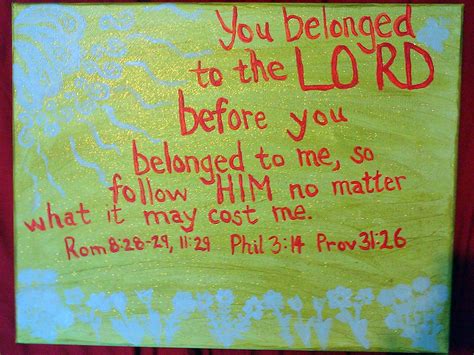 You belonged
to the LORD
before you
belonged to me, so
follow HIM no matter
what it may cost me.
Rom 8:28-29, 11:29 Phil 3:14 Prov 31:26